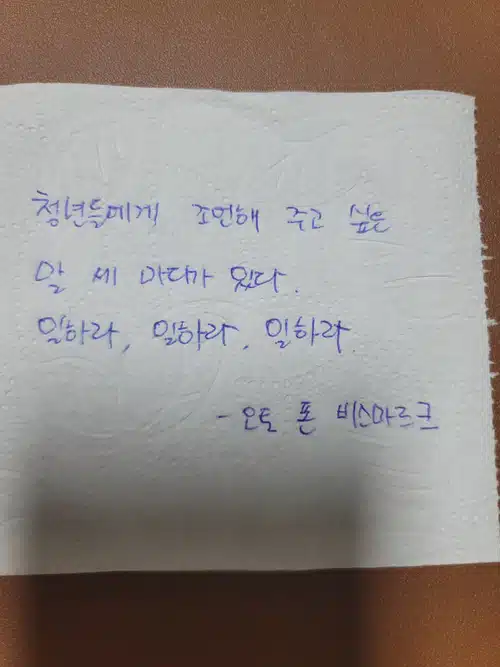 청년들에게 조언해 주고 싶은
말 세 마디가 있다.
일하라, 일하라, 일하라.
- 오토 폰 비스마르크